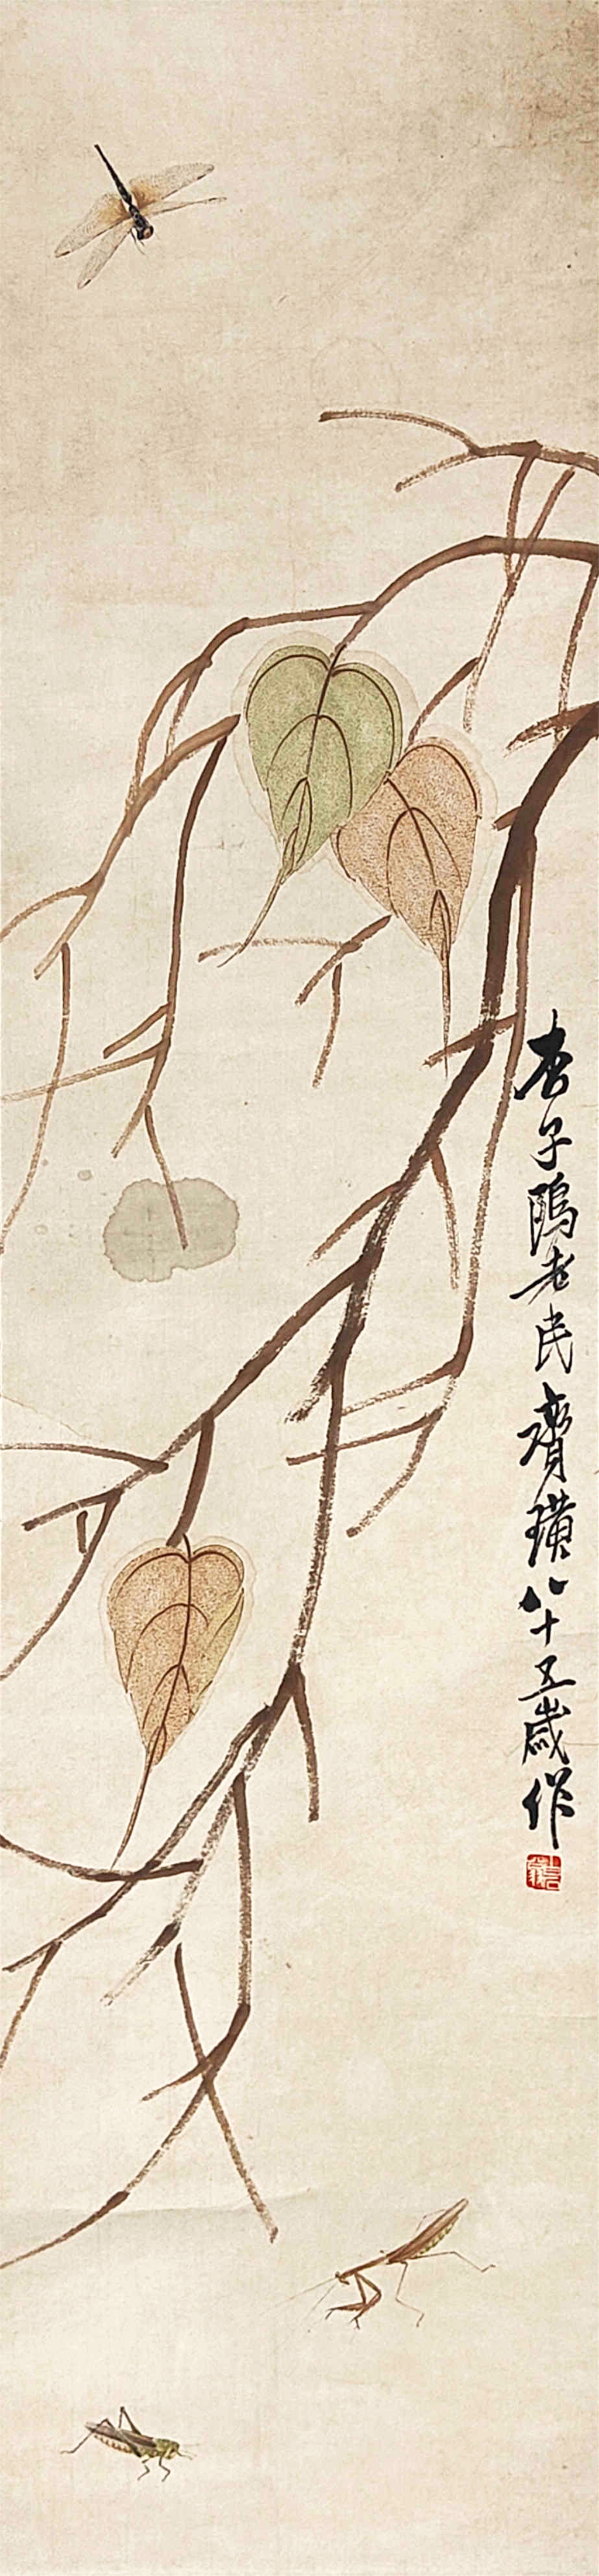 杏子隖老民齊璜八十五歲作